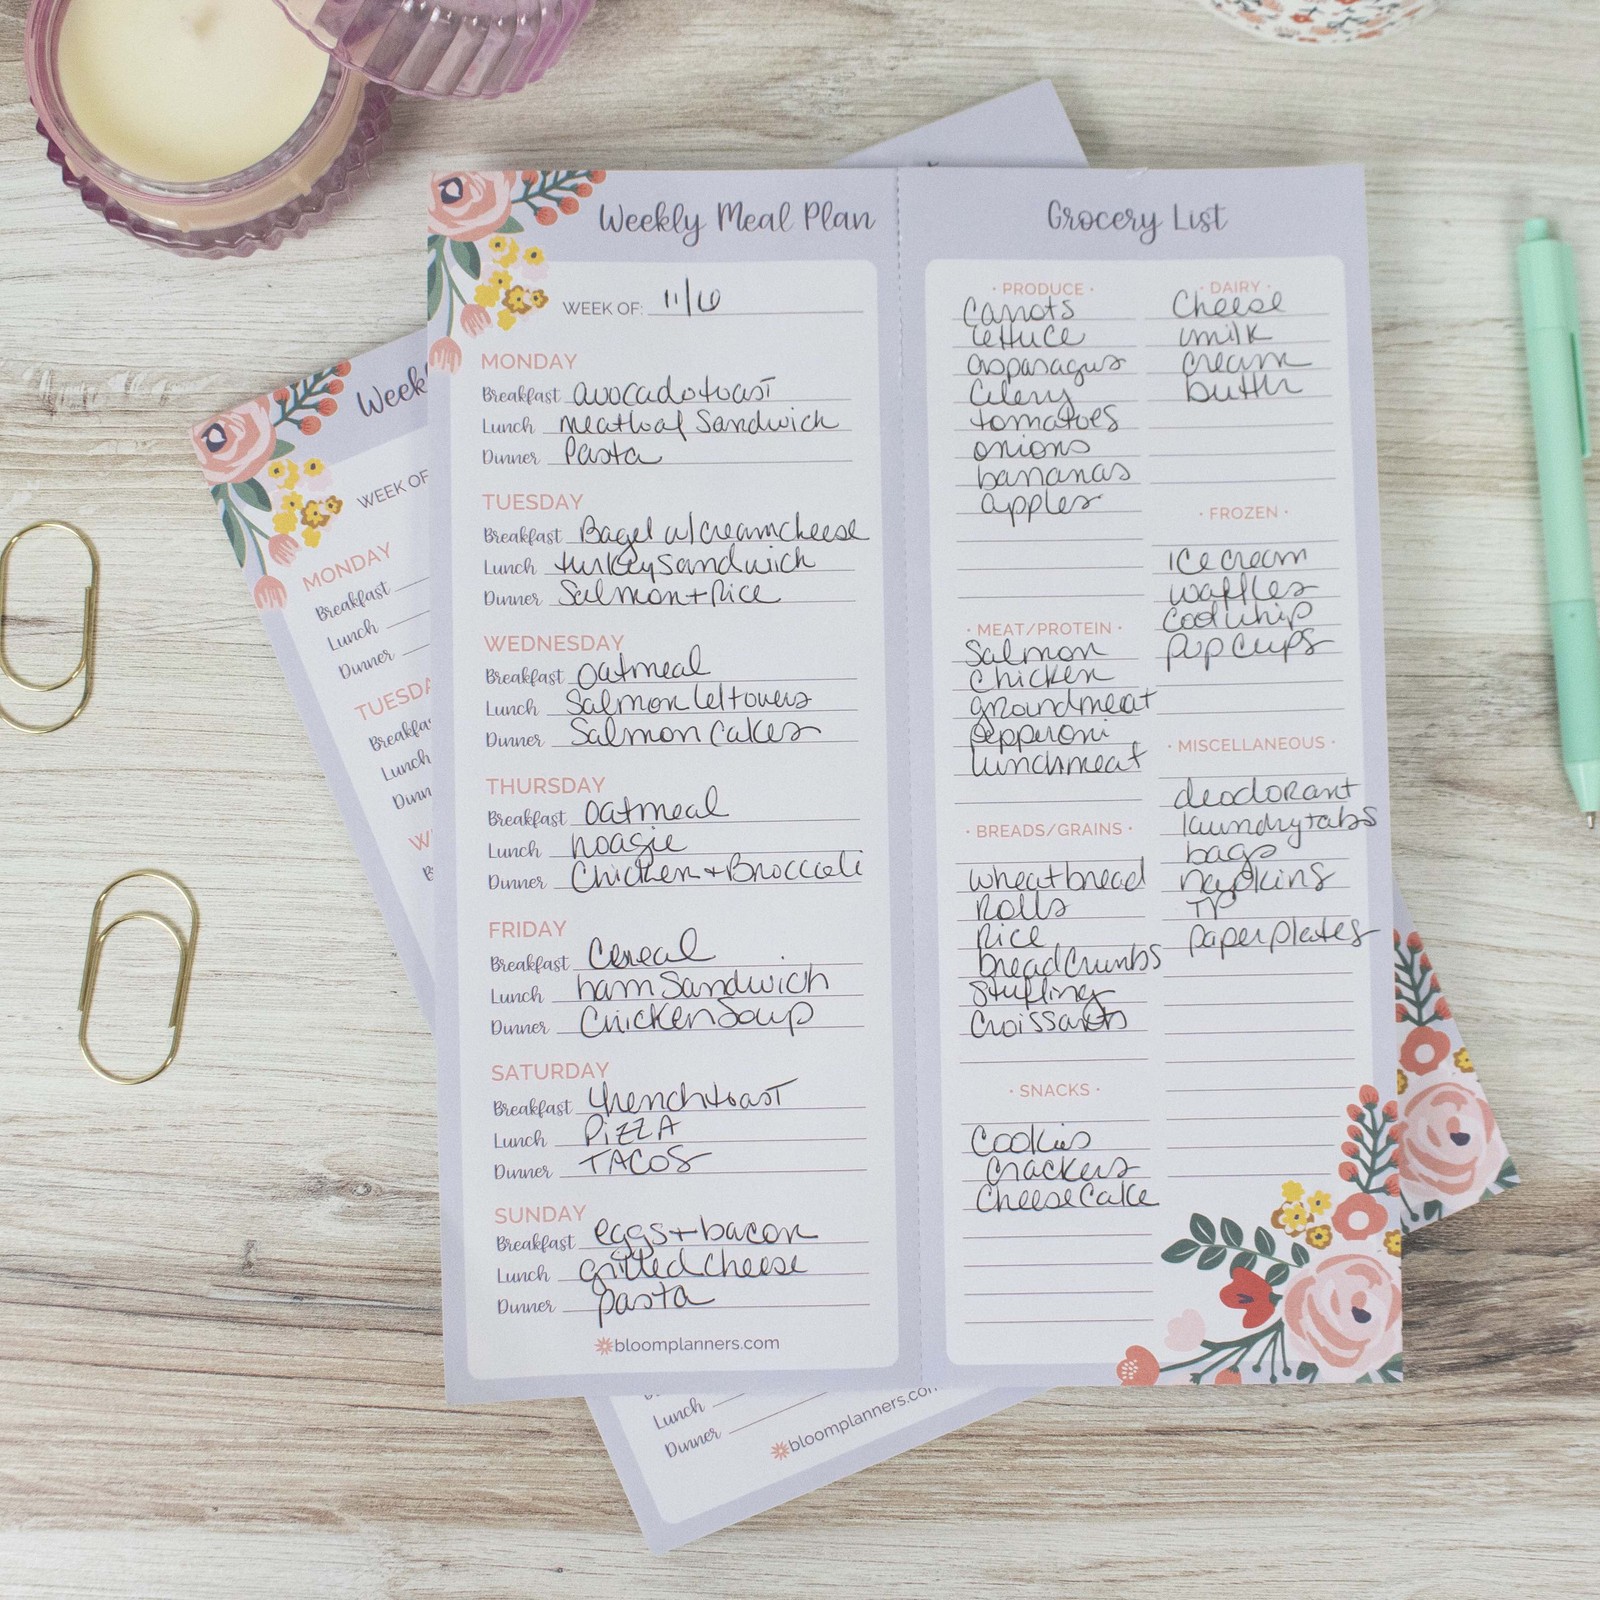 Weekly Meal Plan
WEEK OF: 11/6
MONDAY
Breakfast avocado toast
Lunch meatloaf Sandwich
Dinner Pasta
TUESDAY
Breakfast Bagel w/creamcheese
Lunch turkey Sandwich
Dinner Salmon + Rice
WEDNESDAY
Breakfast oatmeal
Lunch Salmon leftovers
Dinner Salmon Cakes
THURSDAY
Breakfast oatmeal
Lunch hoagie
Dinner Chicken + Broccoli
FRIDAY
Breakfast Cereal
Lunch ham Sandwich
Dinner Chicken Soup
SATURDAY
Breakfast french toast
Lunch PIZZA
Dinner TACOS
SUNDAY
Breakfast eggs + bacon
Lunch grilled cheese
Dinner pasta
bloomplanners.com
Grocery List
PRODUCE
Carrots
lettuce
asparagus
Celery
tomatoes
onions
bananas
apples
MEAT/PROTEIN
Salmon
Chicken
groundmeat
pepperoni
lunchmeat
BREADS/GRAINS
wheat bread
Rolls
Rice
bread Crumbs
Stuffing
Croissants
SNACKS
Cookies
Crackers
Cheese Cake
DAIRY
Cheese
milk
cream
butter
FROZEN
ice cream
waffles
Cool whip
pup cups
MISCELLANEOUS
deodorant
laundry tabs
bags
napkins
TP
paper plates
Weekl
WEEK OF
MONDAY
Breakfast
Lunch
Dinner
TUESDA
Breakfa
Lunch
Dinn
W
B
Lunch
Dinner
bloomplanners.com